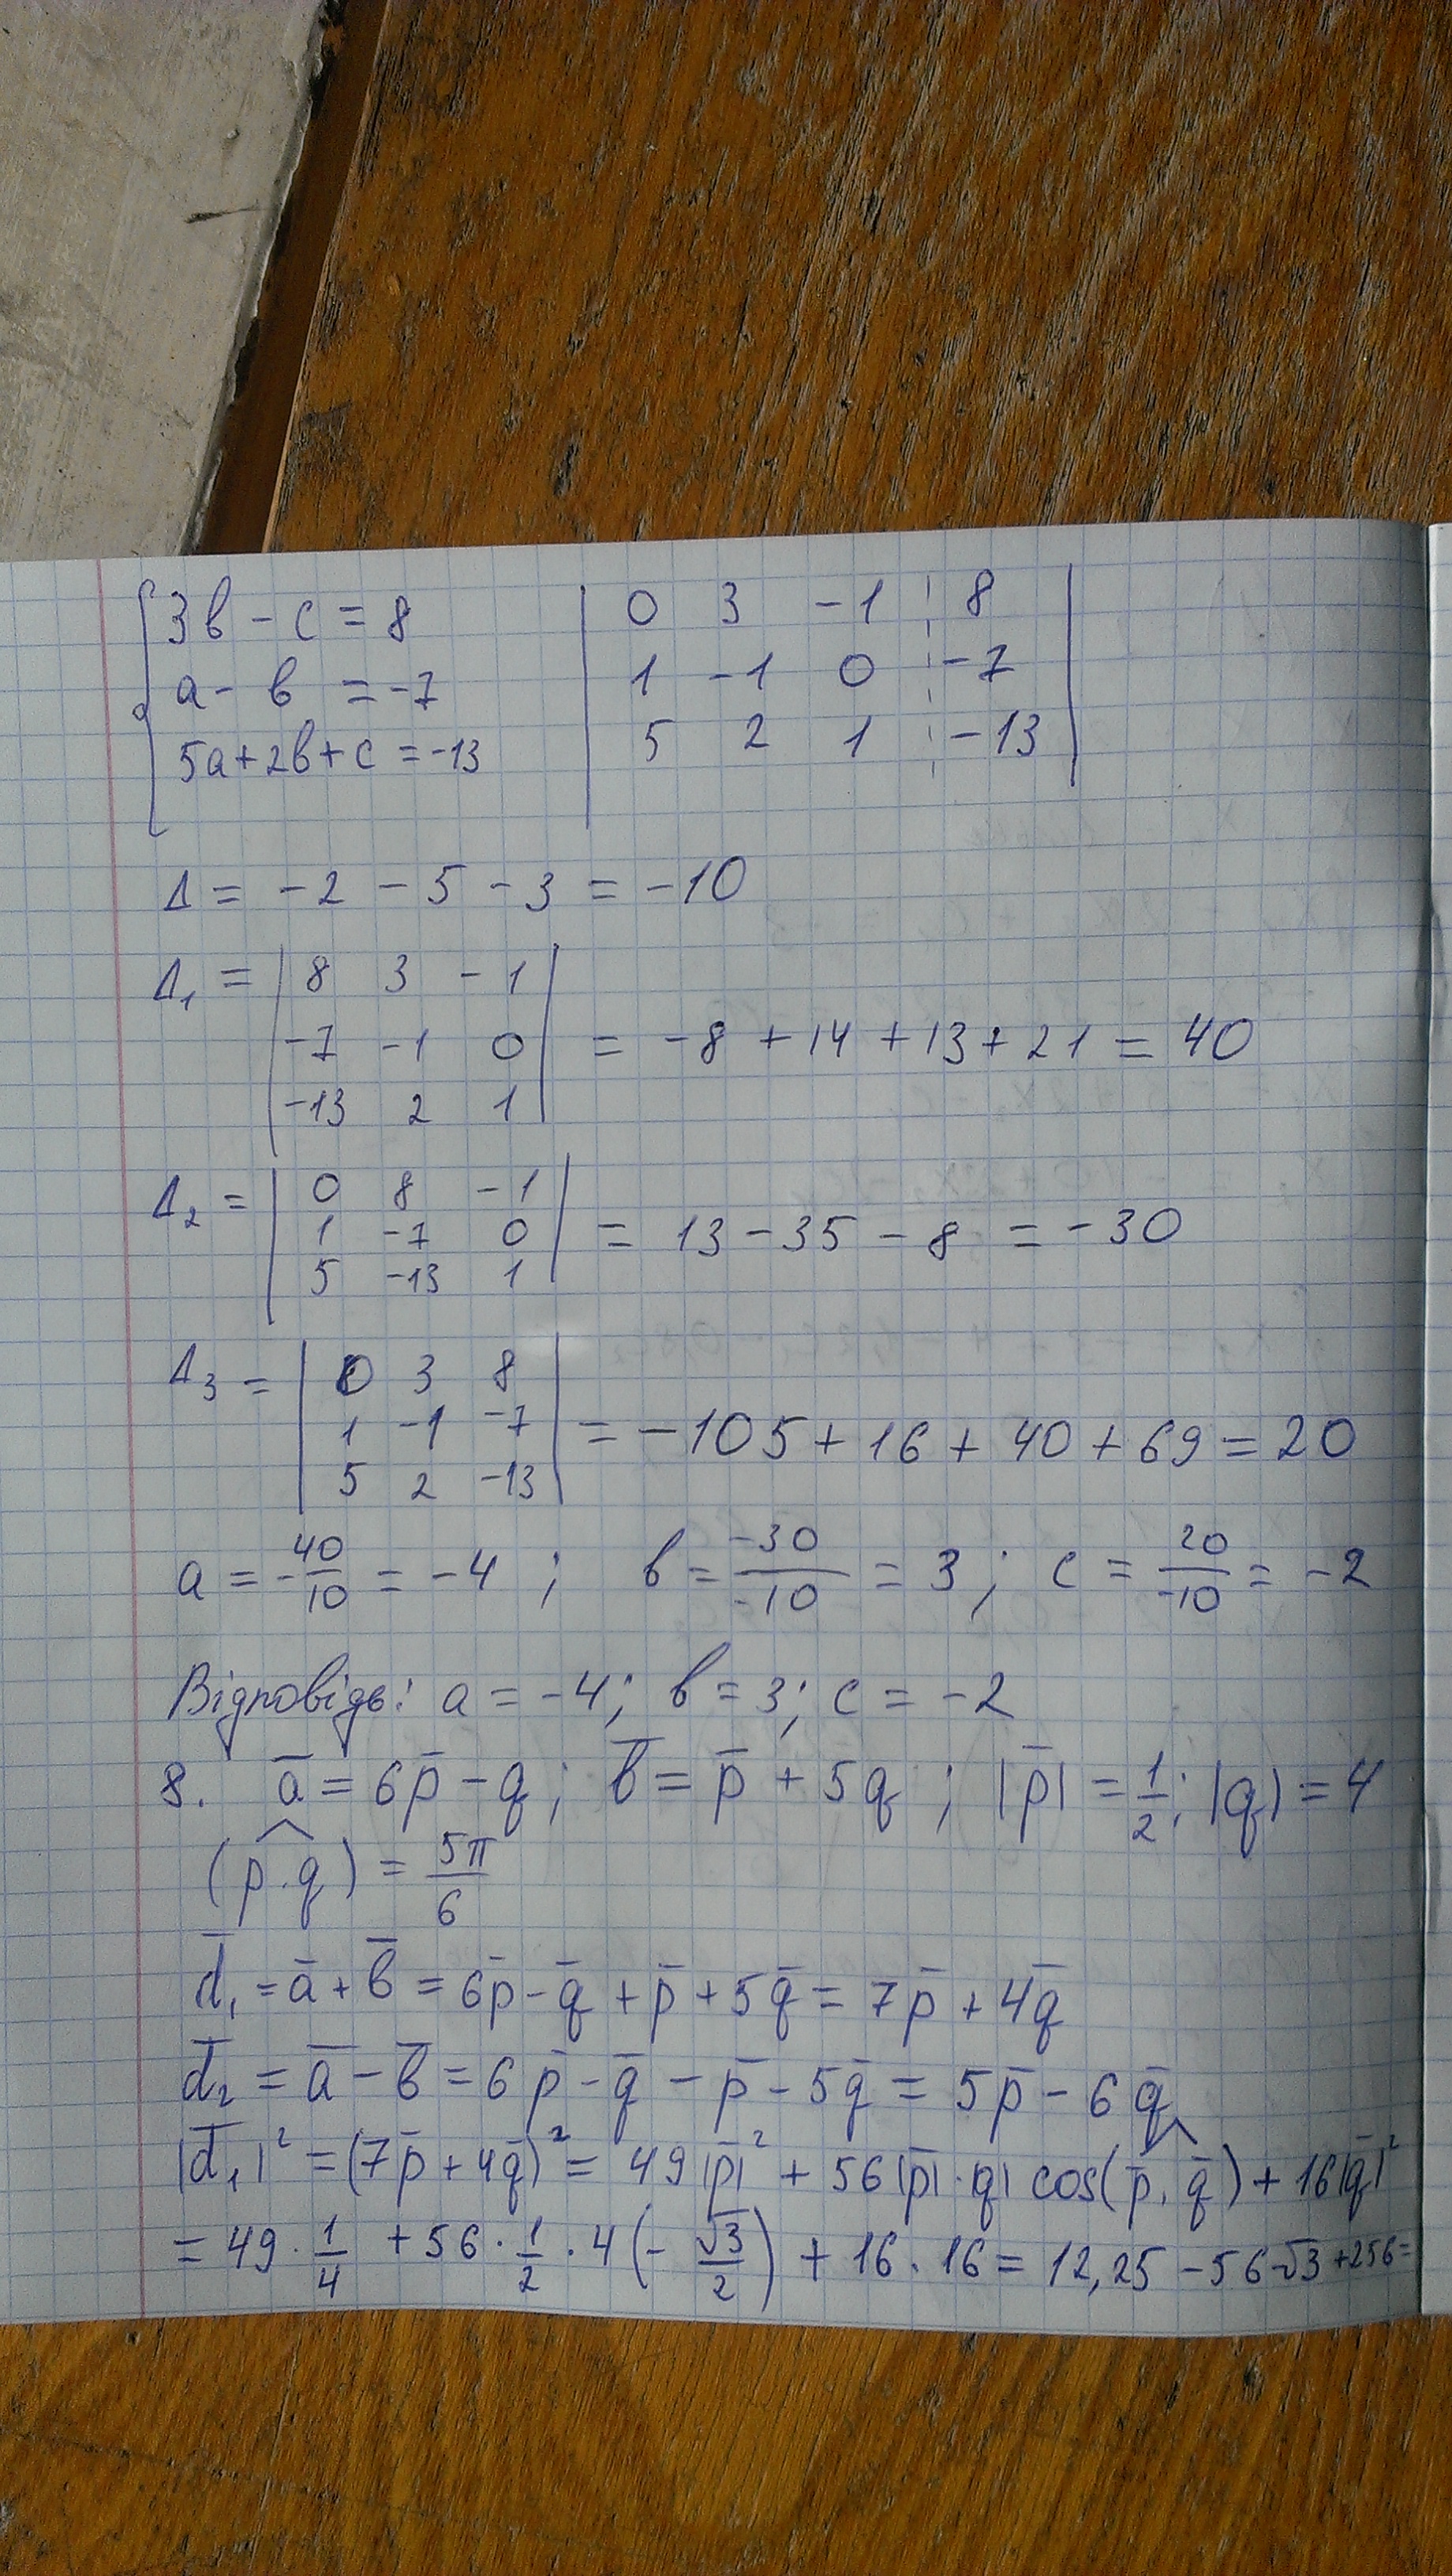 3в - c = 8
а - в = -7
5а+2в+c = -13
0 3 -1 8
1 -1 0 -7
5 2 1 -13
Δ = -2 - 5 - 3 = -10
Δ₁ = | 8 3 -1 |
-7 -1 0 = -8 + 14 + 13 + 21 = 40
-13 2 1
Δ₂ = | 0 8 -1 |
1 -7 0 = 13 - 35 - 8 = -30
5 -13 1
Δ₃ = | 0 3 8 |
1 -1 -7 = -105 + 16 + 40 + 69 = 20
5 2 -13
a = -40/10 = -4 ; в = -30/-10 = 3 ; c = 20/-10 = -2
Відповідь: a = -4; в = 3; c = -2
8. a̅ = 6p̅ - q ; в̅ = p̅ + 5q ; |p̅| = 1/2 ; |q| = 4
(p̂.q) = 5π/6
d̅₁ = a̅ + в̅ = 6p̅ - q̅ + p̅ + 5q̅ = 7p̅ + 4q̅
d̅₂ = a̅ - в̅ = 6p̅ - q̅ - p̅ - 5q̅ = 5p̅ - 6q̅
|d̅₁|² = (7p̅ + 4q̅)² = 49|p̅|² + 56|p̅|·q| cos(p̅, q̅) + 16|q̅|²
= 49 · 1/4 + 56 · 1/2 · 4 (- √3/2) + 16 · 16 = 12,25 - 56√3 + 256 =